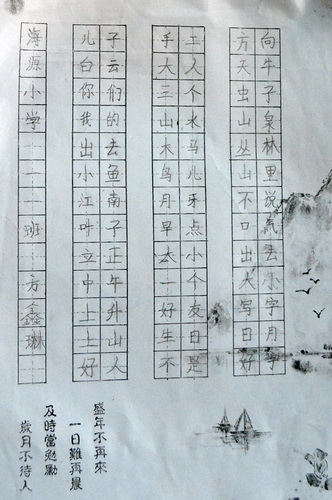 向牛子泉林里说去小字月字
方天虫山丛山不口出大写日好
工人个水马儿牙点小个友日是
手大三山木鸟月早太一好生不
子云们的去鱼南子正午升山人
儿白你我出小江叶立中上土好
海源小学一一班方鑫琳
盛年不再來
一日難再晨
及時當勉勵
歲月不待人